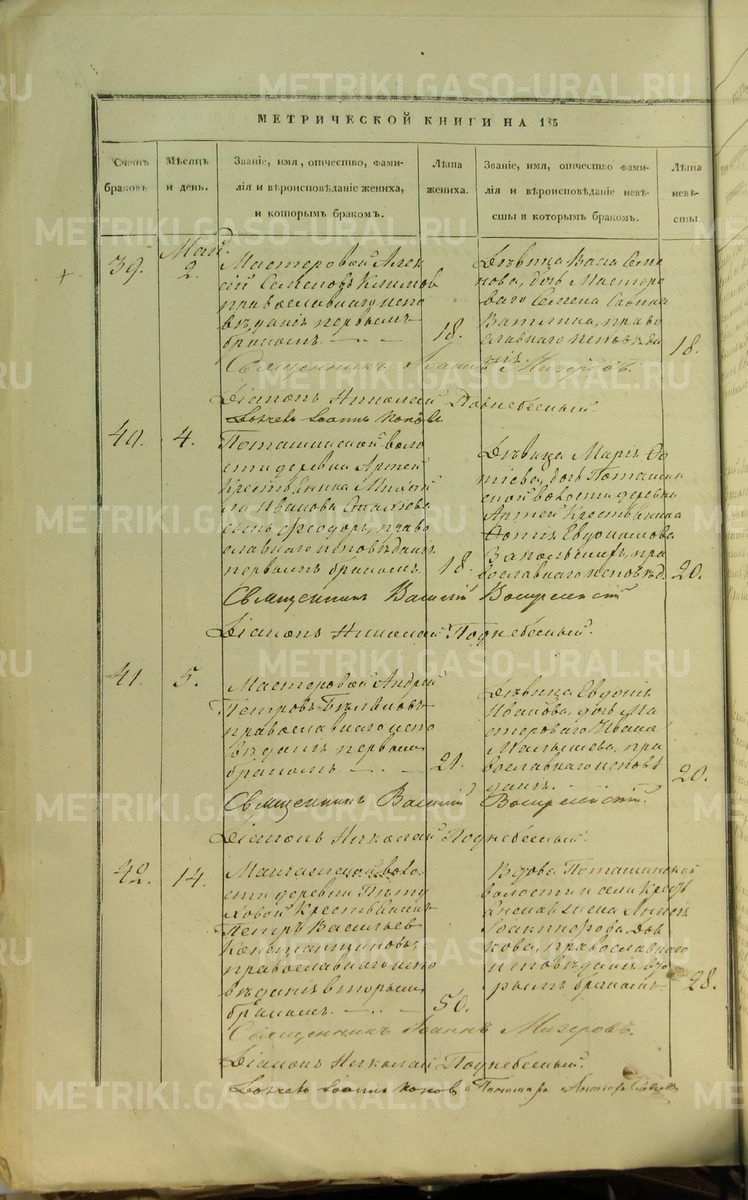 METRIKI.GASO-URAL.RU
МЕТРИЧЕСКОЙ КНИГИ НА 185
Счетъ браковъ.
Мѣсяцъ и день.
Званіе, имя, отчество, фами-
лія и вѣроисповѣданіе жениха,
и которымъ бракомъ.
Лѣта жениха.
Званіе, имя, отчество фами-
лія и вѣроисповѣданіе невѣ-
сты и которымъ бракомъ.
Лѣта невѣ-
сты.
39.
Май.
2.
Мастеровой Алек
сій Семеновъ Климов
православнаго испо
вѣданія первымъ
бракомъ.
18.
Дѣвица Семе
нова, дочь Мастеро
ваго Семена
право
славнаго исповѣда
нія.
18.
Священникъ Іоаннъ Мизеровъ.
Діаконъ Николай Поднебесный.
Іоаннъ Поповъ
40.
4.
Поташинской воло
сти деревни Артей
Крестьянина Михаи
ла Иванова
сынъ Феодоръ, право
славнаго исповѣданія
первымъ бракомъ.
18.
Дѣвица Марія Фо
тіева, дочь Поташин
ской волости деревни
Артей Крестьянина
Фотія Евдокимова
пра
вославнаго исповѣд.
20.
Священникъ Василій Воскресенскій
Діаконъ Николай Поднебесный.
41.
5.
Мастеровой Андрей
Петровъ Бѣляковъ
православнаго испо
вѣданія первымъ
бракомъ.
21.
Дѣвица Евдокія
Иванова, дочь Ма
стероваго Ивана
Малышева, пра
вославнаго исповѣ
данія.
20.
Священникъ Василій Воскресенскій.
Діаконъ Николай Поднебесный.
42.
14.
воло
сти деревни Пѣту
ховой Крестьянинъ
Петръ Васильевъ
Константиновъ,
православнаго испо
вѣданія вторымъ
бракомъ.
50.
Вдова Поташинской
волости и села Крест
православнаго
исповѣданія вто
рымъ бракомъ.
28.
Священникъ Іоаннъ Мизеровъ.
Діаконъ Николай Поднебесный.
Іоаннъ Поповъ
Пономарь